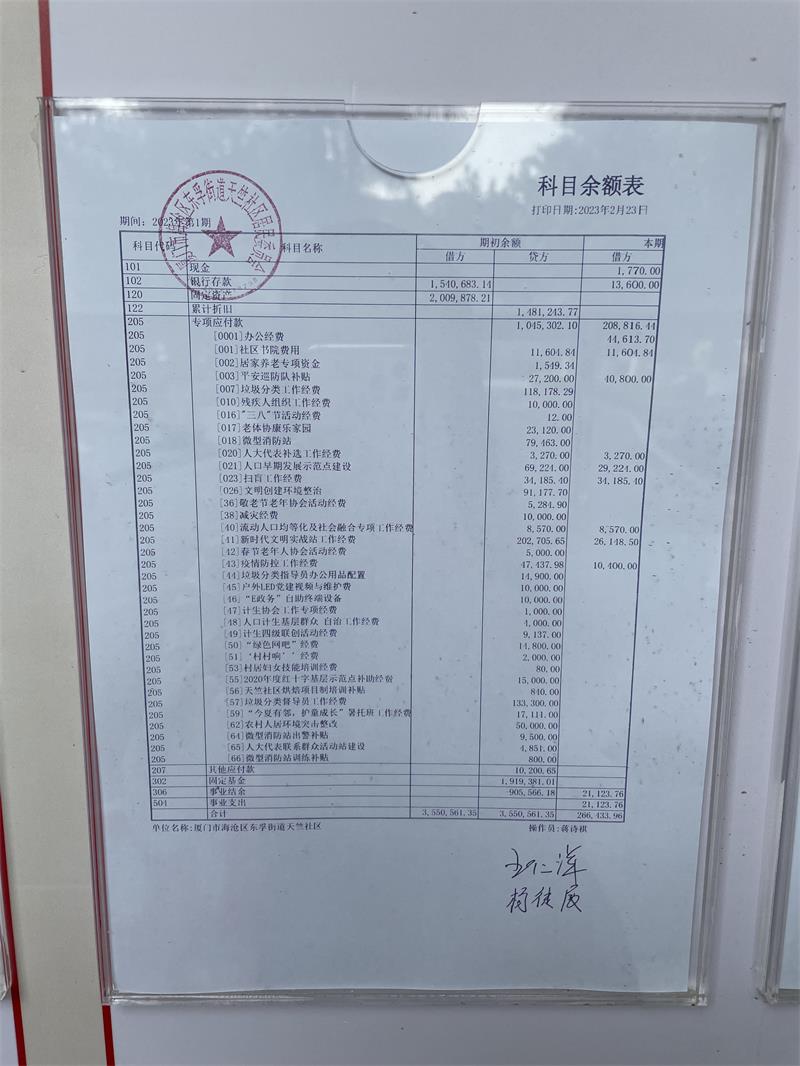 科目余额表
打印日期:2023年2月23日
期间: 2023年第1期
科目代码 科目名称 期初余额 本期
借方 贷方 借方
101 现金 1,770.00
102 银行存款 1,540,683.14 13,600.00
120 固定资产 2,009,878.21
122 累计折旧 1,481,243.77
205 专项应付款 1,045,302.10 208,816.44
205 [0001]办公经费 44,613.70
205 [001]社区书院费用 11,604.84 11,604.84
205 [002]居家养老专项资金 1,549.34
205 [003]平安巡防队补贴 27,200.00 40,800.00
205 [007]垃圾分类工作经费 118,178.29
205 [010]残疾人组织工作经费 10,000.00
205 [016]"三八"节活动经费 12.00
205 [017]老体协康乐家园 23,120.00
205 [018]微型消防站 79,463.00
205 [020]人大代表补选工作经费 3,270.00 3,270.00
205 [021]人口早期发展示范点建设 69,224.00 29,224.00
205 [023]扫盲工作经费 34,185.40 34,185.40
205 [026]文明创建环境整治 91,177.70
205 [36]敬老节老年协会活动经费 5,284.90
205 [38]减灾经费 10,000.00
205 [40]流动人口均等化及社会融合专项工作经费 8,570.00 8,570.00
205 [41]新时代文明实战站工作经费 202,705.65 26,148.50
205 [42]春节老年人协会活动经费 5,000.00
205 [43]疫情防控工作经费 47,437.98 10,400.00
205 [44]垃圾分类指导员办公用品配置 14,900.00
205 [45]户外LED党建视频与维护费 10,000.00
205 [46]“E政务”自助终端设备 10,000.00
205 [47]计生协会工作专项经费 1,000.00
205 [48]人口计生基层群众 自治工作经费 4,000.00
205 [49]计生四级联创活动经费 9,137.00
205 [50]“绿色网吧”经费 14,800.00
205 [51]‘村村响’’经费 2,000.00
205 [53]村居妇女技能培训经费 80.00
205 [55]2020年度红十字基层示范点补助经宿 15,000.00
205 [56]天竺社区烘焙项目制培训补贴 840.00
205 [57]垃圾分类督导员工作经费 133,300.00
205 [59]“今夏有邻，护童成长”暑托班工作经费 17,111.00
205 [62]农村人居环境突击整改 50,000.00
205 [64]微型消防站出警补贴 9,500.00
205 [65]人大代表联系群众活动站建设 4,851.00
205 [66]微型消防站训练补贴 800.00
207 其他应付款 10,200.65
302 固定基金 1,919,381.01
306 事业结余 -905,566.18 21,123.76
504 事业支出 21,123.76
合计 3,550,561.35 3,550,561.35 266,433.96
单位名称:厦门市海沧区东孚街道天竺社区 操作员:蒋诗祺